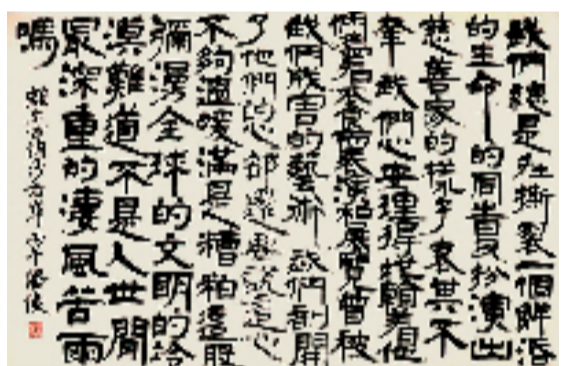 我們總是在撕裂一個鮮活
的生命的同時又扮演出
慈善家的樣子哀其不
幸我們心安理得
們當表演和展覽曾被
我們戕害的藝術我們剖開
了他們的心卻還要說這心
不夠溫暖滿是糟粕這股
瀰漫全球的文明的冷
漠難道不是人世間
最深重的淒風苦雨
嗎